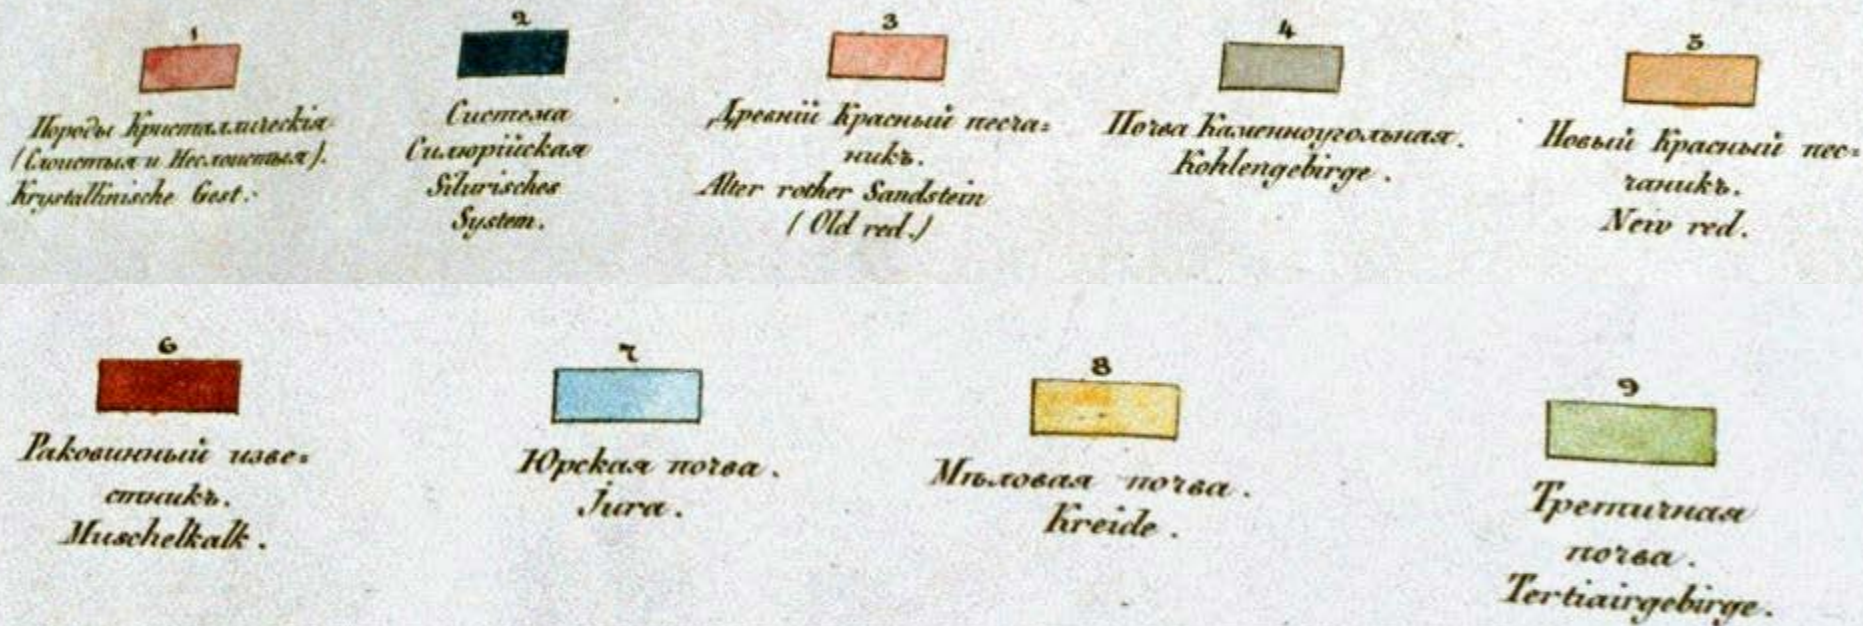 1
Породы Кристаллическія
(Слоистыя и Неслоистыя).
Krystallinische Gest.:
2
Система
Силюрійская
Silurisches
System.
3
Древній Красный песча=
никъ.
Alter rother Sandstein
(Old red.)
4
Почва Каменноугольная.
Kohlengebirge.
5
Новый Красный пес=
чаникъ.
New red.
6
Раковинный изве=
стникъ.
Muschelkalk.
7
Юрская почва.
Jura.
8
Мѣловая почва.
Kreide.
9
Третичная
почва.
Tertiairgebirge.